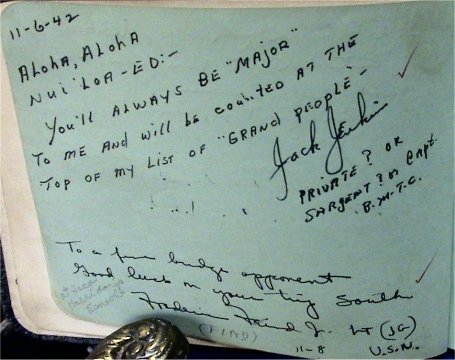 11-6-42
ALOHA, ALOHA
NUI LOA - ED:-
YOU'LL ALWAYS BE "MAJOR"
TO ME AND will BE COUNTED AT THE
TOP OF MY LIST OF "GRAND PEOPLE"-
Jack
PRIVATE? OR
SARGENT? OR Capt.
B.M.T.C.
To a fine bridge opponent
Good luck on your trip South
Jr. Lt (JG)
(FIND)
11-8 U.S.N.